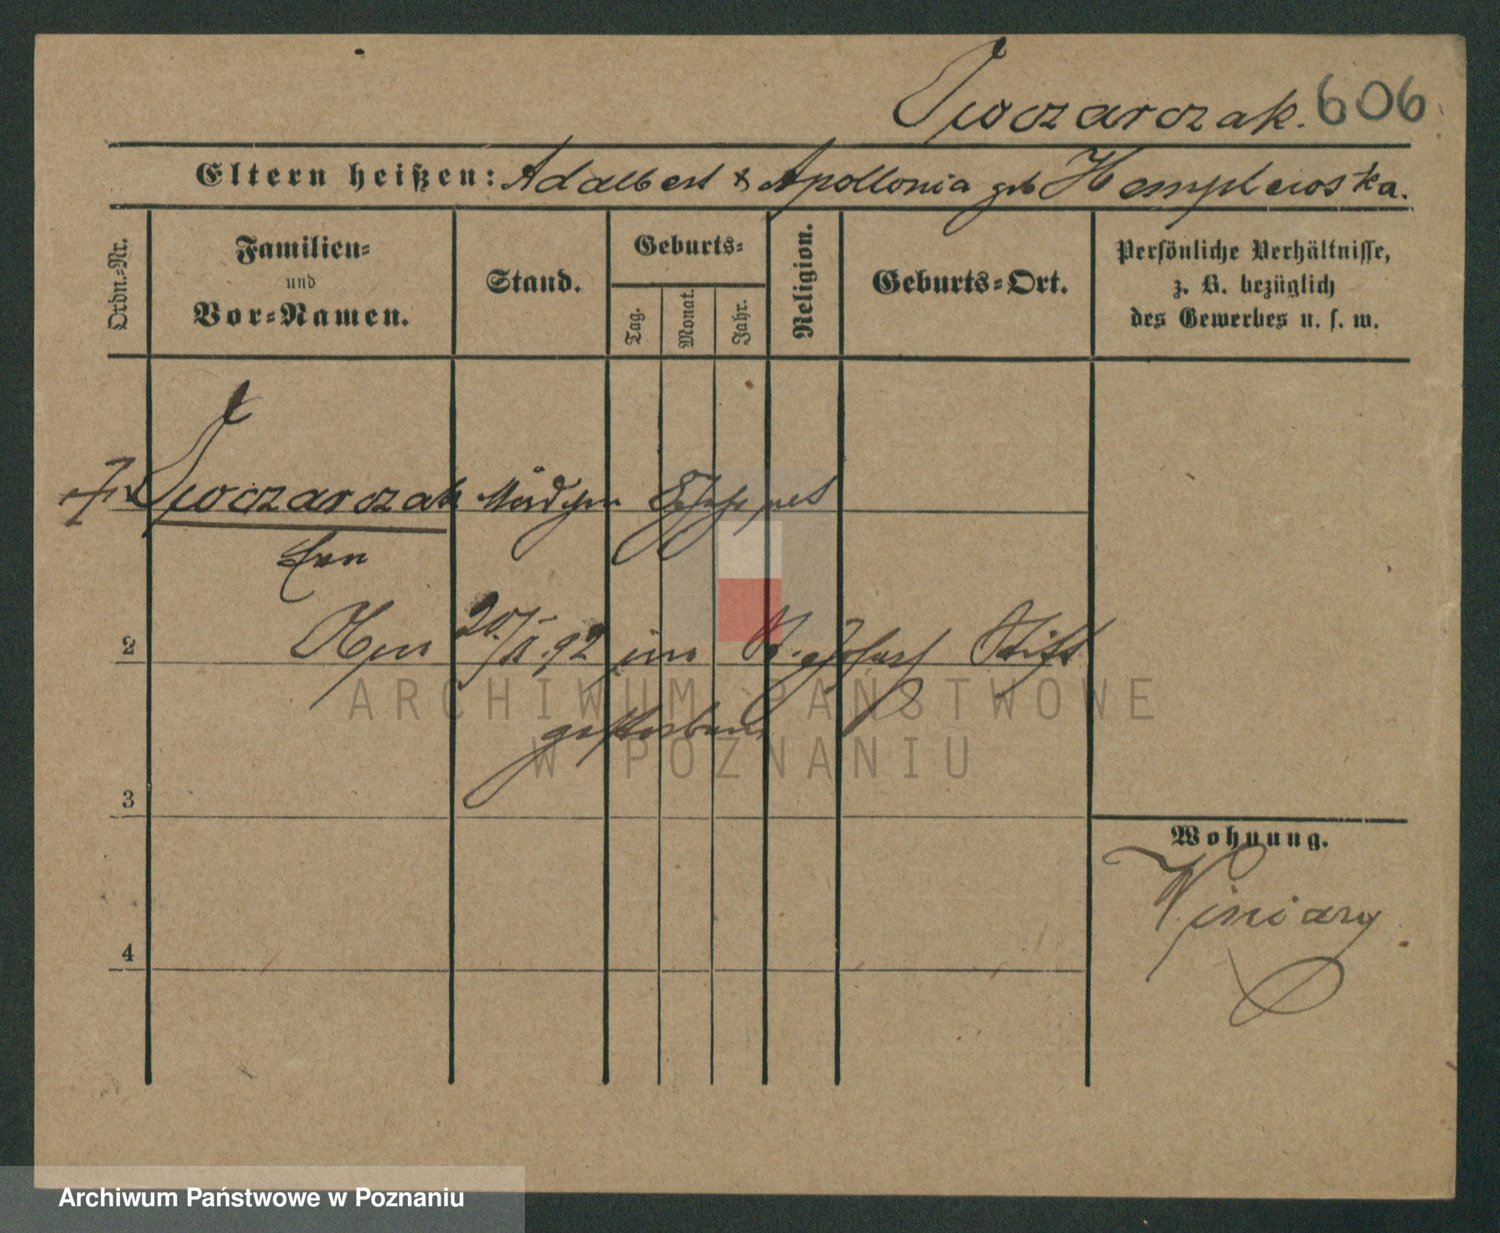 Owczarczak. 606
Eltern heißen: Adalbert & Apollonia geb Hemplewska.
Ordn.-Nr.
Familien-
und
Vor-Namen.
Stand.
Geburts-
Tag.
Monat.
Jahr.
Religion.
Geburts-Ort.
Persönliche Verhältnisse,
z. B. bezüglich
des Gewerbes u. s. w.
Owczarczak Mädchen
Eva
2 20/ 92 im St. Josefs Stift
gestorben
3
Wohnung.
Winiary
4
ARCHIWUM PAŃSTWOWE
W POZNANIU
Archiwum Państwowe w Poznaniu